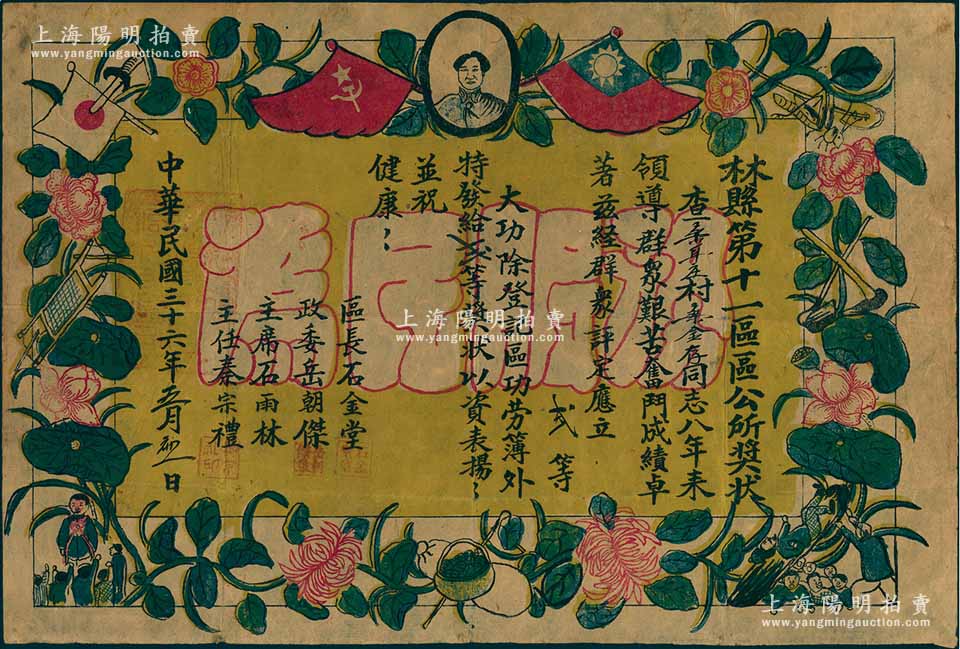 林縣第十一區區公所奬状
查村金存同志八年来
領導群眾艱苦奮鬥成績卓
著兹経群眾評定應立
弍等
大功除登記區功劳簿外
特發給弍等奬状以資表揚
並祝
健康
區長石金堂
政委岳朝傑
主席石雨林
主任秦宗禮
中華民國三十六年五月日
為民
上海陽明拍賣
www.yangmingauction.com
上海陽明拍賣
www.yangmingauction.com
上海陽明拍賣
www.yangmingauction.com
上海陽明拍賣
www.yangmingauction.com
上海陽明拍賣
www.yangmingauction.com